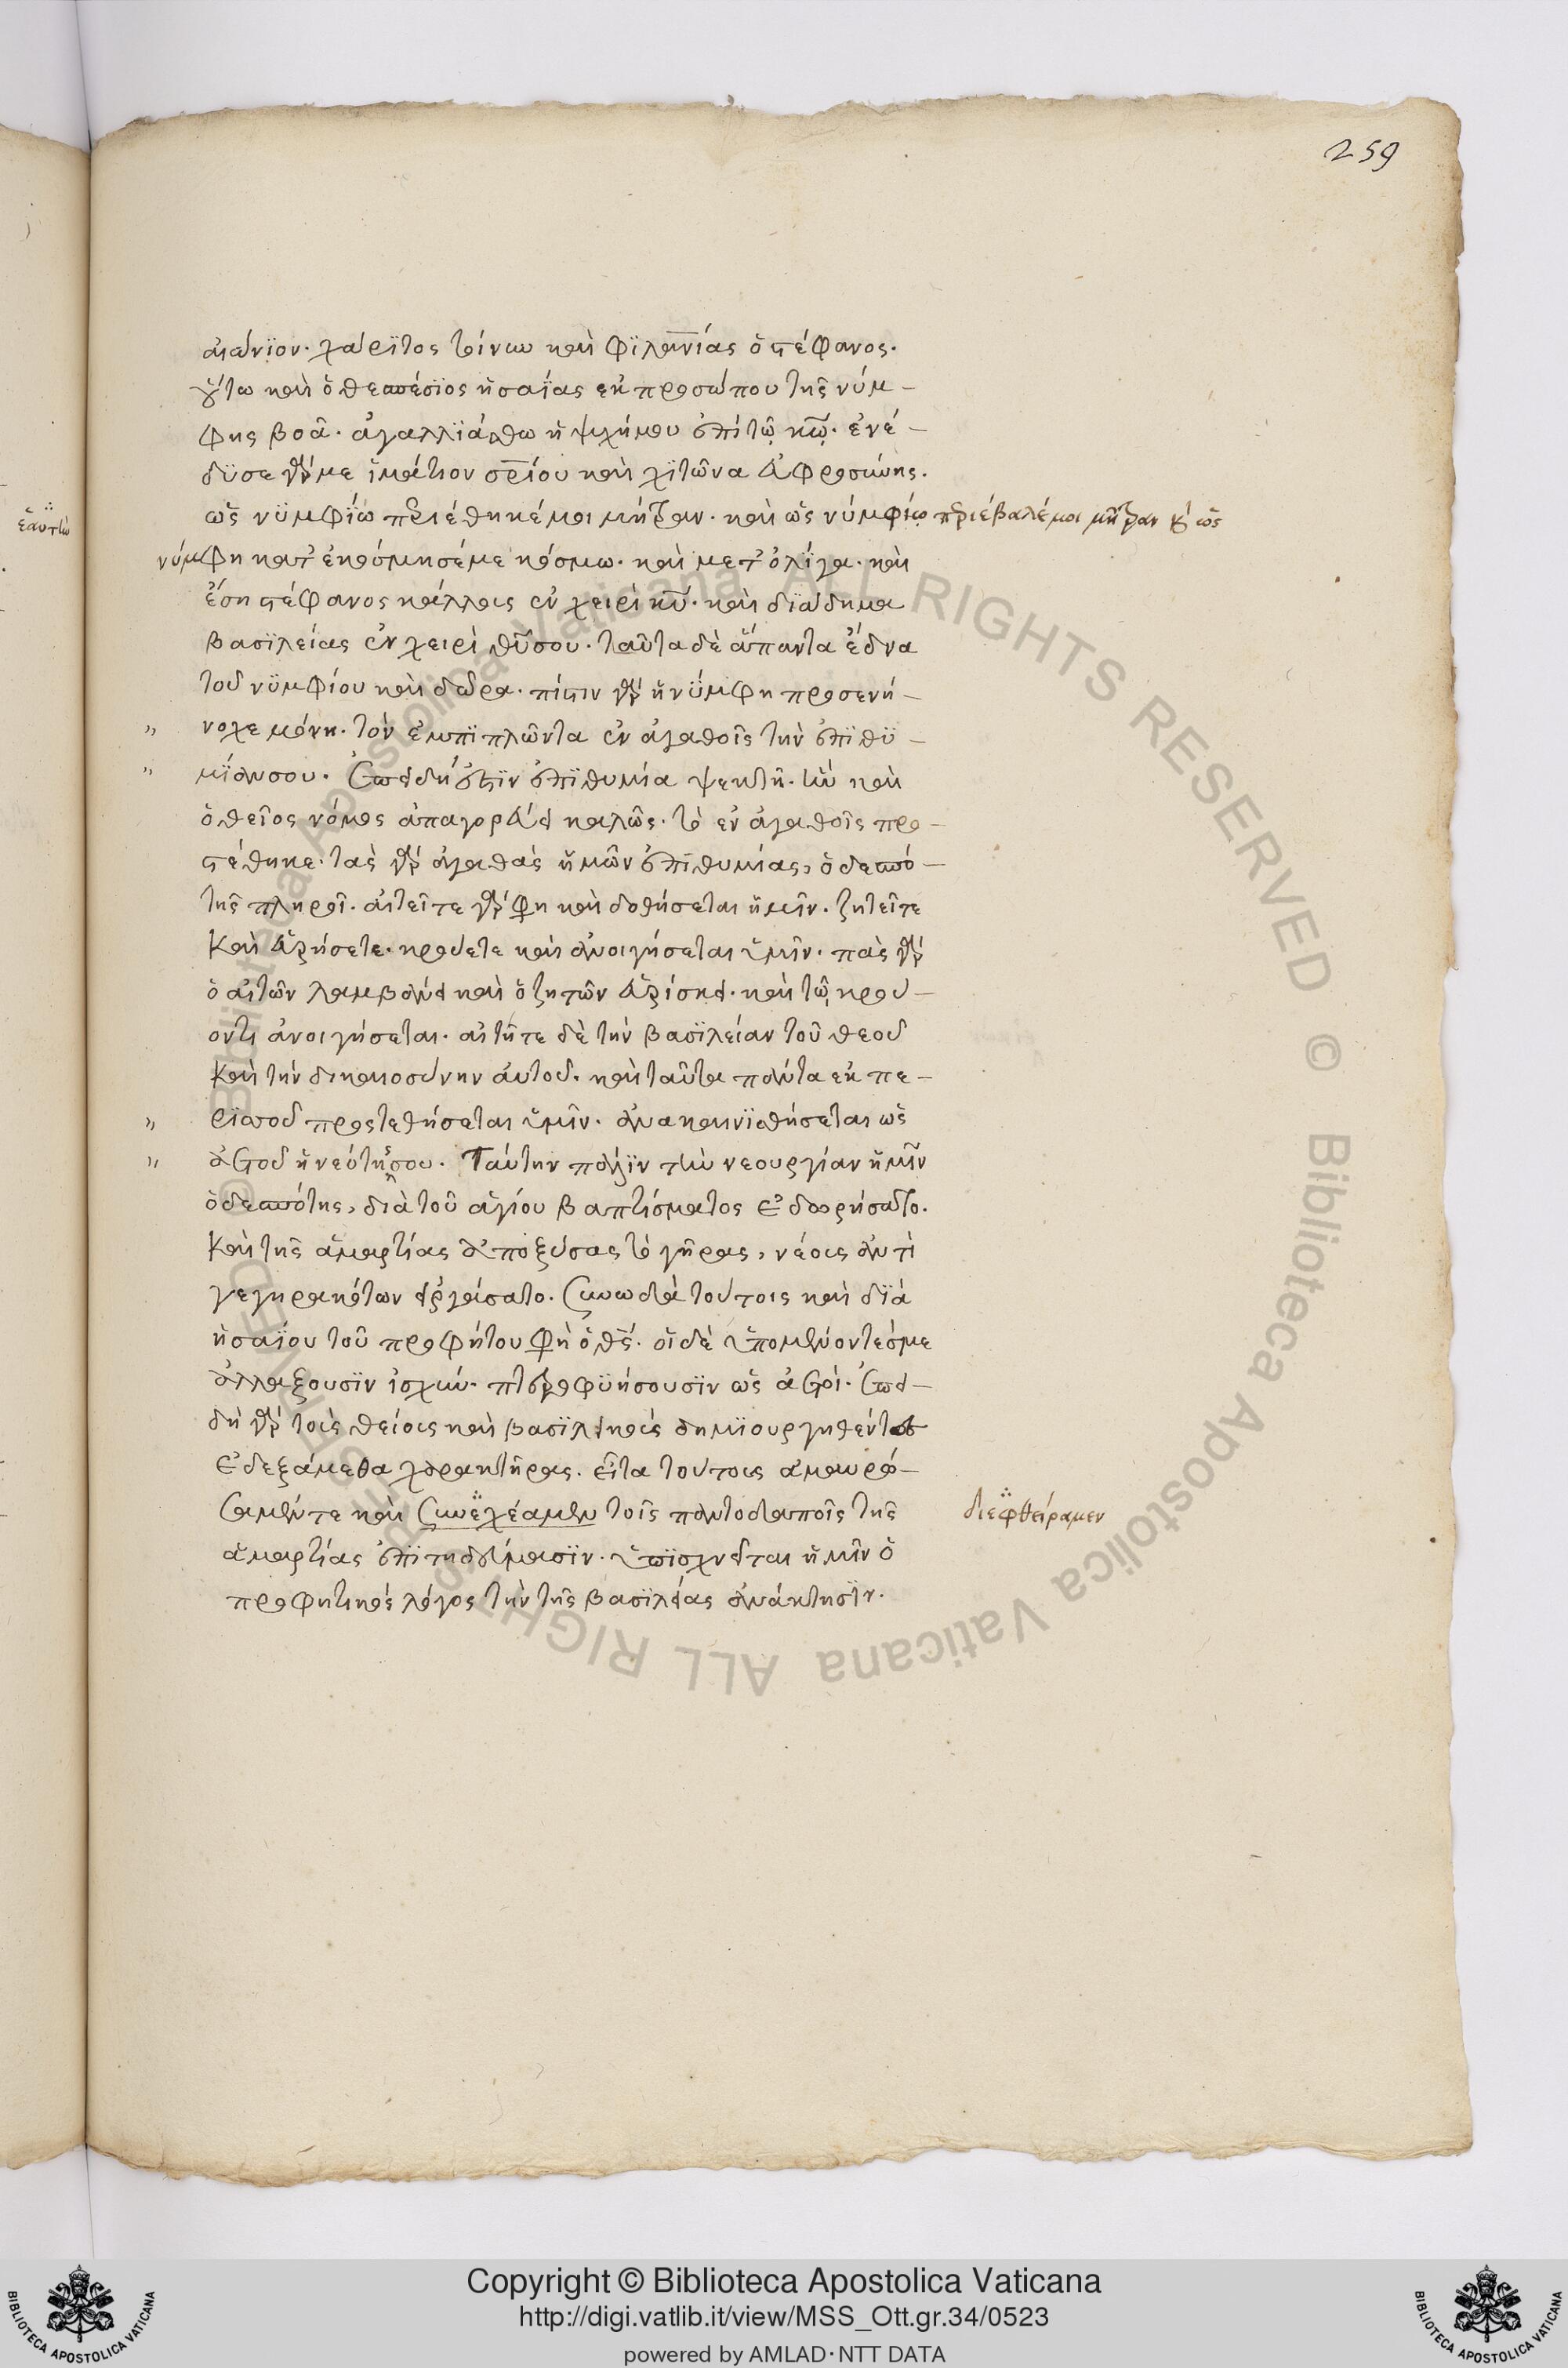 259
αἰώνϊον. χάρϊτος τοίνυν καὶ φϊλανίας ὁ στέφανος.
οὕτω καὶ ὁ θεσπέσϊος ἡσαΐας ἐκ προσώπου τῆς νύμ-
φης βοᾷ. ἀγαλλϊάσθω ἡ ψυχήμου ἐπὶ τῷ κῶ. ἐνέ-
δϋσε γάρ με ἱμάτιον σρίου καὶ χϊτῶνα εὐφροσύνης.
ὡς νϋμφΐω περιέθηκέ μοι μίτραν. καὶ ὡς νύμφίῳ περιέβαλέ μοι μίτραν κὶ ὡς
ἑαυτὼ
νύμφη κατεκόσμησέ με κόσμω. καὶ μετ' ὀλίγα. καὶ
ἔση στέφανος κάλλους ἐν χειρὶ κυ. καὶ δϊάδημα
βασϊλείας ἐν χειρὶ θυ σου. ταῦτα δὲ ἅπαντα ἕδνα
τοῦ νϋμφίου καὶ δῶρα. πίστιν γὰρ ἡ νύμφη προσενή-
νοχε μόνην. τὸν ἐμπϊπλῶντα ἐν ἀγαθοῖς τὴν ἐπϊθϋ-
μΐαν σου. ἐπειδή ἐστϊν ἐπϊθυμία ψεκτὴ. ἣν καὶ
ὁ θεῖος νόμος ἀπαγορεύει καλῶς. τὸ ἐν ἀγαθοῖς προ-
στέθηκε. τὰς γὰρ ἀγαθὰς ἡμῶν ἐπϊθυμίας, ὁ δεσπό-
της πληροῖ. αἰτεῖτε γάρ φη καὶ δοθήσεται ἡμῖν. ζητεῖτε
καὶ εὑρήσετε. κρούετε καὶ ἀνοιγήσεται ὑμῖν. πᾶς γὰρ
ὁ αἰτῶν λαμβάνει καὶ ὁ ζητῶν εὑρίσκει. καὶ τῷ κρού-
οντι ἀνοιγήσεται. αἰτῆτε δὲ τὴν βασϊλείαν τοῦ θεοῦ
καὶ τὴν δικαιοσύνην αὐτοῦ. καὶ ταῦτα πάντα ἐκ πε-
ρϊσσοῦ προστεθήσεται ὑμῖν. ἀνακαινϊσθήσεται ὡς
ἀετοῦ ἡ νεότης σου. Ταύτην πάλϊν τὴν νεουργίαν ἡμῖν
ὁ δεσπότης, διὰ τοῦ ἁγίου βαπτίσματος ἐδωρήσατο.
καὶ τῆς ἁμαρτίας ἀποξύσας τὸ γῆρας, νέους ἀντὶ
γεγηρακότων εἰργάσατο. συνωδὰ τούτοις καὶ δϊὰ
ἡσαΐου τοῦ προφήτου φὴ ὁ θς. οἱ δὲ ὑπομένοντές με
ἀλλάξουσϊν ἰσχύν. πτεροφϋήσουσϊν ὡς ἀετοί. ἐπει-
δὴ γὰρ τοὺς θείους καὶ βασϊλικοὺς δημϊουργηθέντες
ἐδεξάμεθα χαρακτῆρας. εἶτα τούτους ἀμαυρώ-
σαμέν τε καὶ συνεχέαμεν τοῖς παντοδαποῖς τῆς
διεφθείραμεν
ἁμαρτίας ἐπϊτηδεύμασϊν. ὑπϊσχνεῖται ἡμῖν ὁ
προφητικὸς λόγος τὴν τῆς βασϊλείας ἀνάκτησϊν.
© Biblioteca Apostolica Vaticana ALL RIGHTS RESERVED © Biblioteca Apostolica Vaticana ALL RIGHTS RESERVED
Copyright © Biblioteca Apostolica Vaticana
http://digi.vatlib.it/view/MSS_Ott.gr.34/0523
powered by AMLAD·NTT DATA
BIBLIOTECA APOSTOLICA VATICANA
BIBLIOTECA APOSTOLICA VATICANA